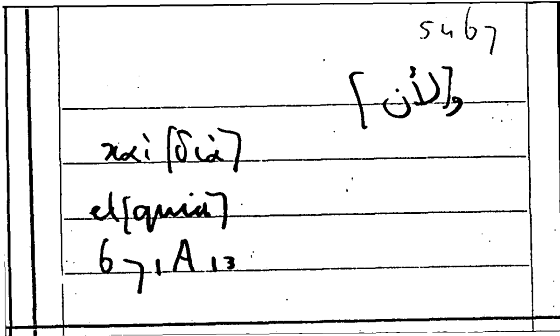 5467
و[لأن]
καὶ [διὰ]
et [quia]
67, A 13